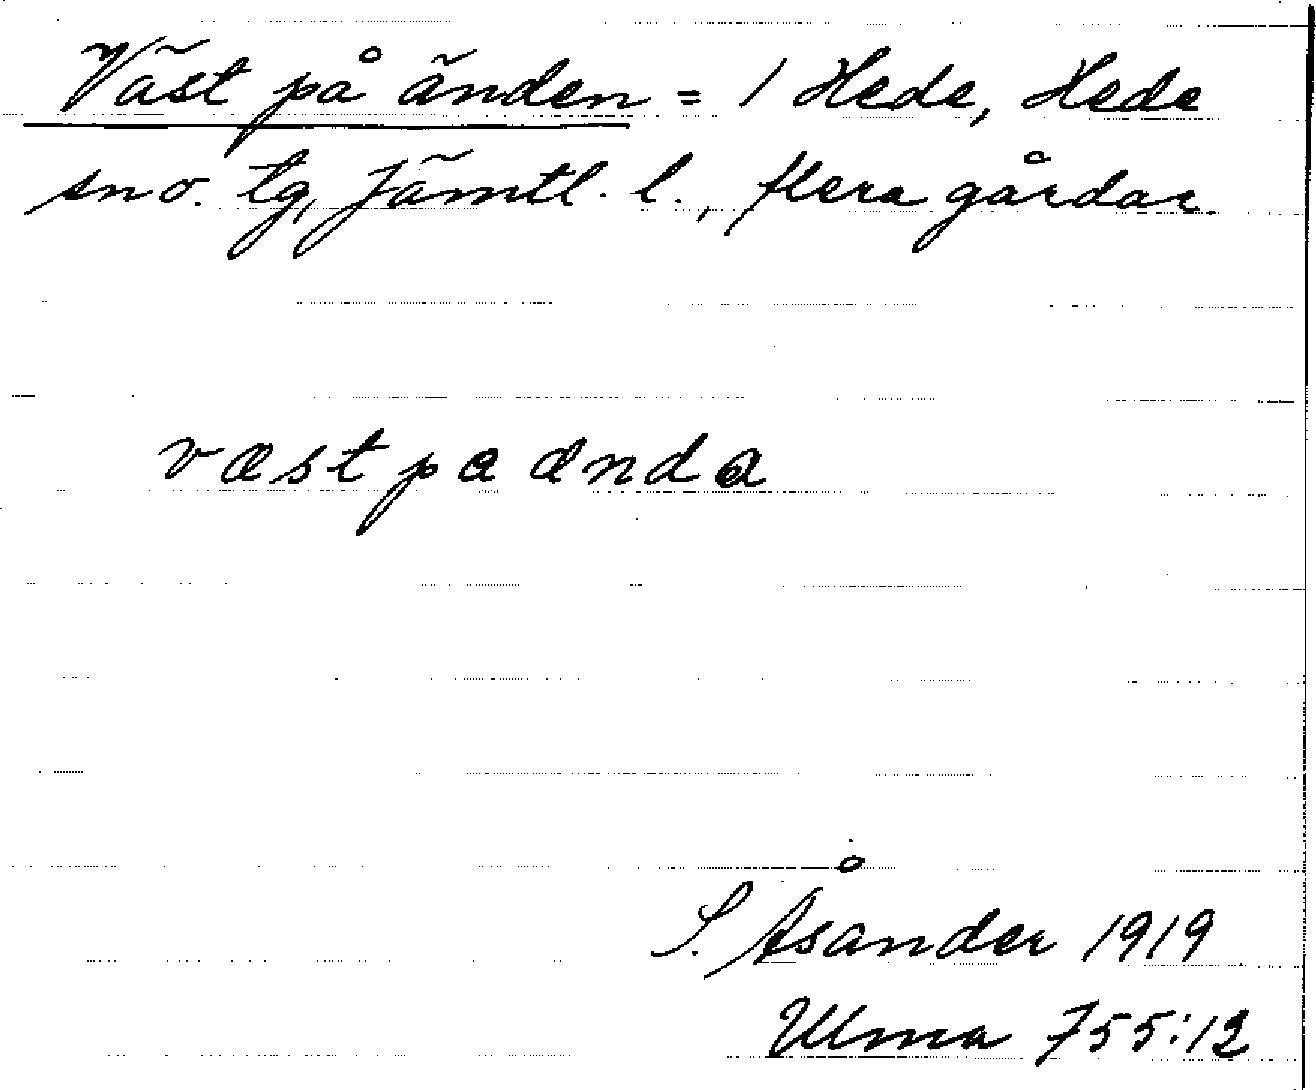 Väst på änden = / Hede, Hede
sn o. tg, Jämtl. l., flera gårdar
væst pa ænda
S. Åsander 1919
Ulma 755:12